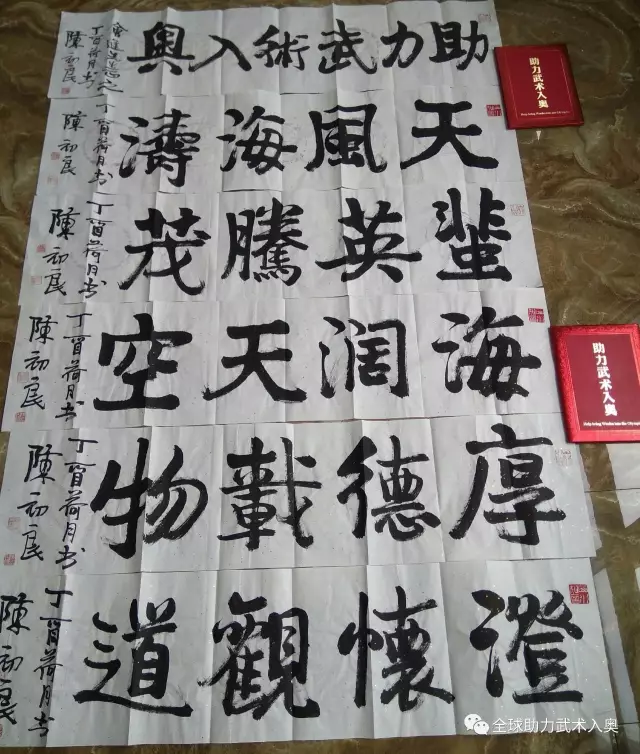 助力武術入奧
丁酉荷月书
陳初良
天風海濤
丁酉荷月书
陳初良
蜚英騰茂
丁酉荷月书
陳初良
海阔天空
丁酉荷月书
陳初良
厚德載物
丁酉荷月书
陳初良
澄懷觀道
丁酉荷月书
陳初良
助力武术入奥
助力武术入奥
全球助力武术入奥